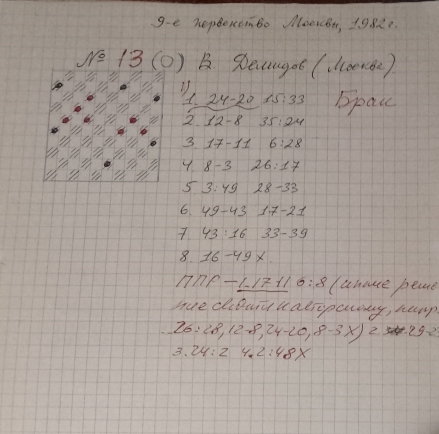 9-е первенство Москвы, 1982г.
№ 13 (0) В. Демидов (Москва)
1)
1. 24-20 15:33 Брак
2. 12-8 35:24
3. 17-11 6:28
4. 8-3 26:17
5 3:49 28-33
6. 49-43 17-21
7. 43:16 33-39
8. 16-49 X
ППР - 1.1711 6:8 (иные реше
ние авторскому, напр
26:28, 12-8, 24-20, 8-3X) 2. 29-2
3. 24:2 4. 2:48X